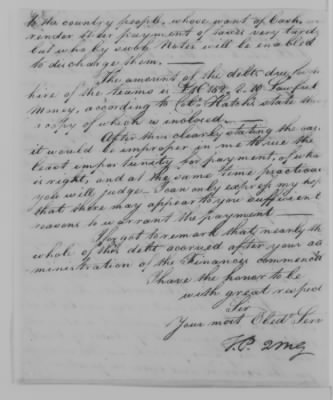 to the country people, whose want of Cash,
render their payment of taxes very tard
but who by such Notes will be enabled
to discharge them.—
The amount of the debts due for the
hire of the teams is
Money, according to Col. Hatch's state
copy of which is inclosed.—
After thus clearly stating the cas
it would be improper in me to use the
least importunity for payment, of wha
is right, and at the same time practicab
you will judge— I can only express my ho
that there may appear to you sufficient
reasons to warrant the payment—
I forgot to remark that nearly the
whole of this debt accrued after your ad
ministration of the Finances commenced
I have the honor to be
with great respect
Sir
Your most Obedt. Serv
T.P. QMG